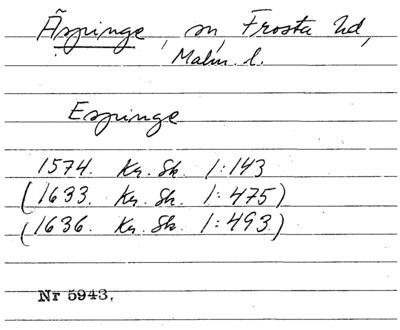 Äspinge, sn, Frosta hd,
Malm. l.
Espinge
1574. Kr. Sk. 1:143
(1633. Kr. Sk. 1:475)
(1636. Kr. Sk. 1:493)
Nr 5943.